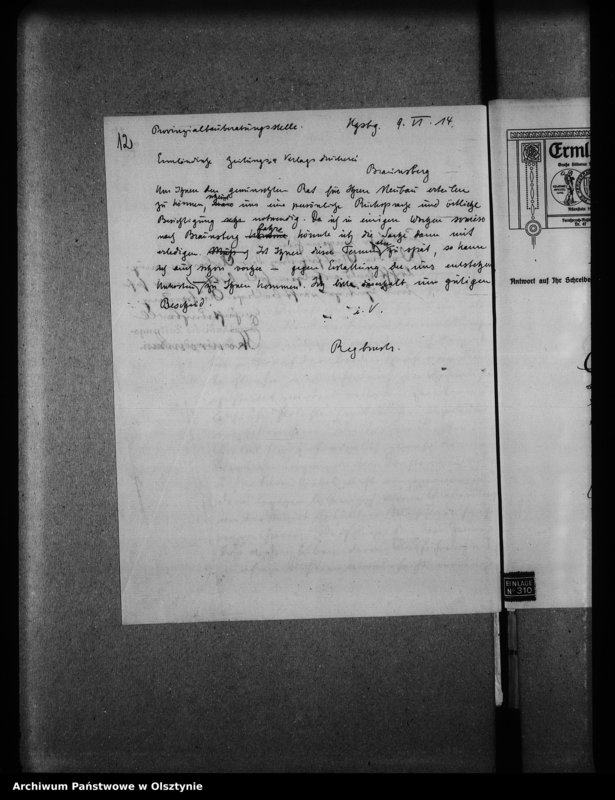 12
Provinzialbauberatungsstelle. Kgsbg. 9. VI. 14.
Ermländische Zeitungs- u Verlags druckerei
Braunsberg
Um Ihnen den gewünschten Rat für Ihren Neubau erteilen
zu können, scheint uns eine persönliche Rücksprache und örtliche
Besichtigung sehr notwendig. Da ich in einigen Wochen sowieso
nach Braunsberg fahre könnte ich die Sache dann mit
erledigen. Ist Ihnen dieser Termin aber zu spät, so kann
ich auch schon vorher – gegen Erstattung der uns entstehenden
Unkosten zu Ihnen kommen. Ich bitte deshalb um gütigen
Bescheid.
i. V.
Regbmstr.
Erml
Antwort auf Ihr Schreibe
EINLAGE
No 310
Archiwum Państwowe w Olsztynie